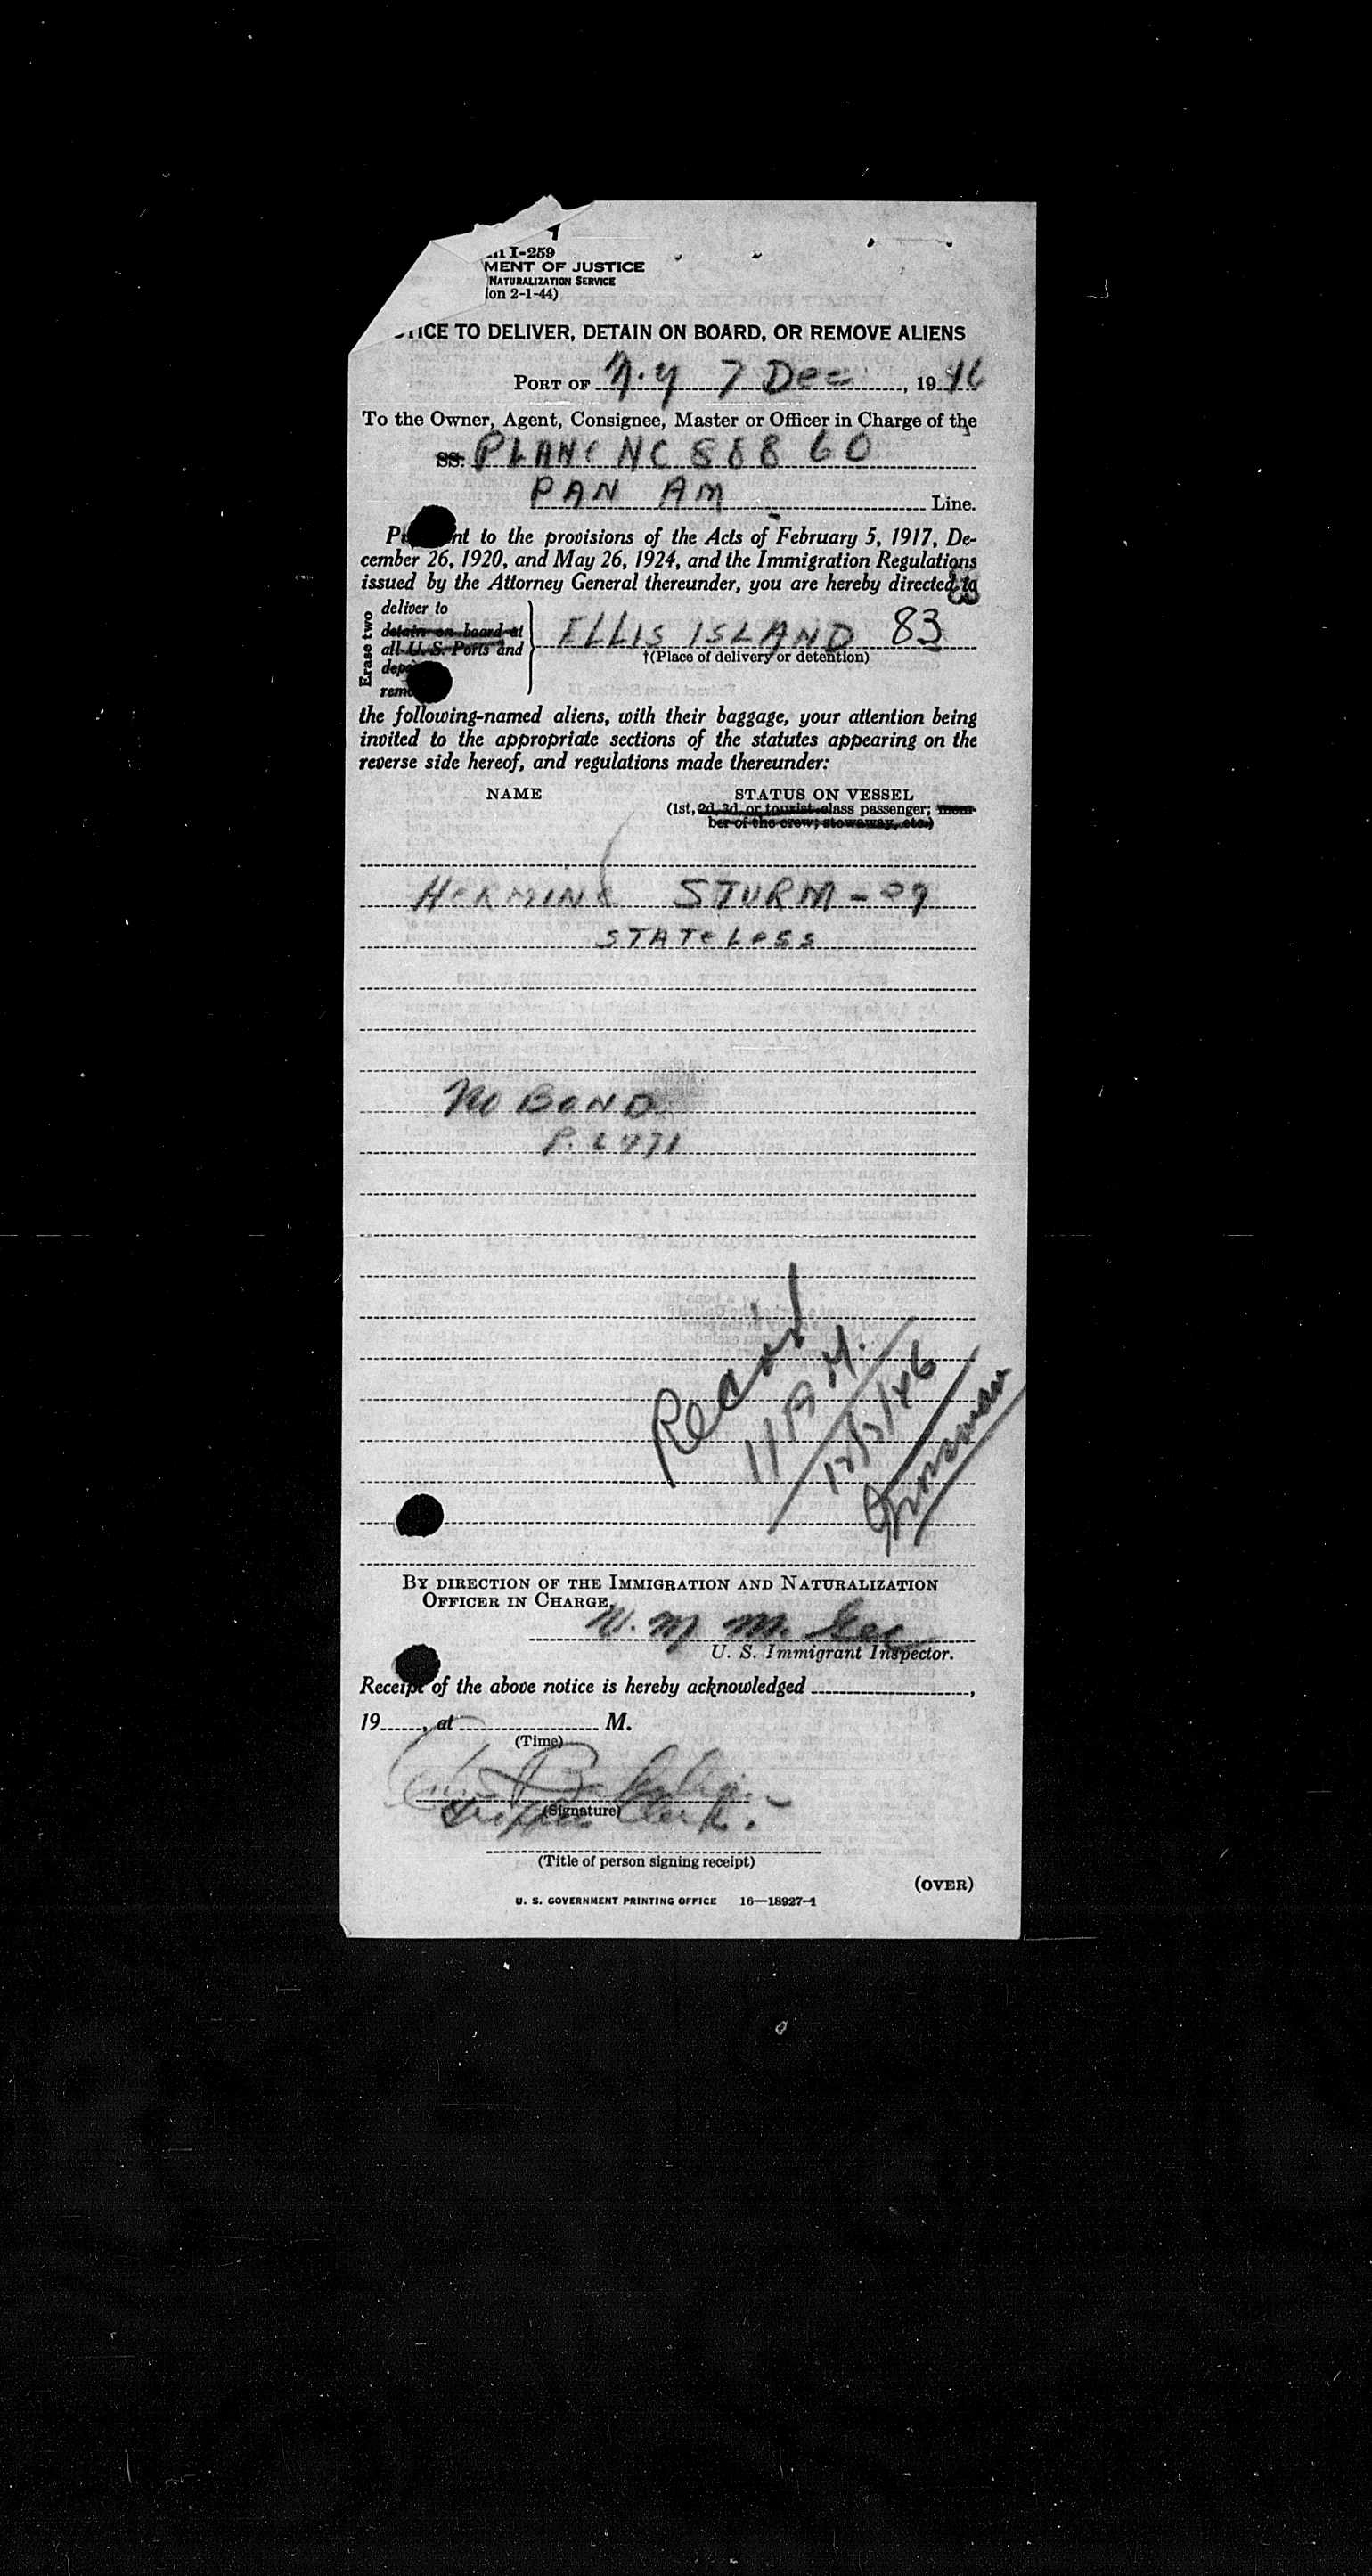 I-259
MENT OF JUSTICE
NATURALIZATION SERVICE
ion 2-1-44)
ICE TO DELIVER, DETAIN ON BOARD, OR REMOVE ALIENS
PORT OF N.Y 7 Dec, 1946
To the Owner, Agent, Consignee, Master or Officer in Charge of the
SS. PLANE NC 88860
PAN AM Line.
nt to the provisions of the Acts of February 5, 1917, De-
cember 26, 1920, and May 26, 1924, and the Immigration Regulations
issued by the Attorney General thereunder, you are hereby directed to
Erase two
deliver to
detain on board at
all U. S. Ports and
ELLIS ISLAND 83
†(Place of delivery or detention)
the following-named aliens, with their baggage, your attention being
invited to the appropriate sections of the statutes appearing on the
reverse side hereof, and regulations made thereunder:
NAME STATUS ON VESSEL
(1st, 2d, 3d, or tourist-class passenger; mem-
ber of the crew; stowaway, etc.)
HERMINE STURM -
STATELESS
NO BOND
Record
11 PM.
12/7/46
BY DIRECTION OF THE IMMIGRATION AND NATURALIZATION
OFFICER IN CHARGE,
U. S. Immigrant Inspector.
Receipt of the above notice is hereby acknowledged ,
19 , at M.
(Time)
(Signature)
Clerk.
(Title of person signing receipt)
(OVER)
U. S. GOVERNMENT PRINTING OFFICE 16—18927-1